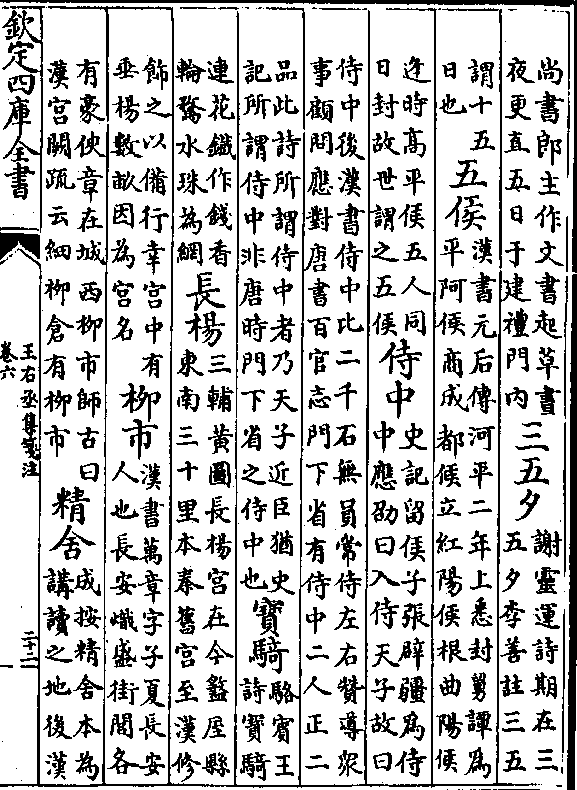 尚書郎主作文書起草書
夜更直五日于建禮門内
三五夕
謝靈運詩期在三
五夕李善註三五
謂十五
日也
五侯
漢書元后傳河平二年上悉封舅譚為
平阿侯商成都侯立紅陽侯根曲陽侯
逢時高平侯五人同
日封故世謂之五侯
侍中
史記留侯子張辟疆為侍
中應劭曰入侍天子故曰
侍中後漢書侍中比二千石無員常侍左右贊導衆
事顧問應對唐書百官志門下省有侍中二人正二
品此詩所謂侍中者乃天子近臣猶史
記所謂侍中非唐時門下省之侍中也
寶騎
駱賓王
詩寳騎
連花鐵作錢香
輪騖水珠為網
長楊
三輔黄圖長楊宫在今盩厔縣
東南三十里本秦舊宫至漢修
飾之以備行幸宫中有
垂楊數畝因為宫名
柳市
漢書萬章字子夏長安
人也長安熾盛街閭各
有豪俠章在城西柳市師古曰
漢宫闕疏云細柳倉有柳市
精舍
成按精舍本為
講讀之地後漢
欽定四庫全書
王右丞集箋注
卷六
二十二